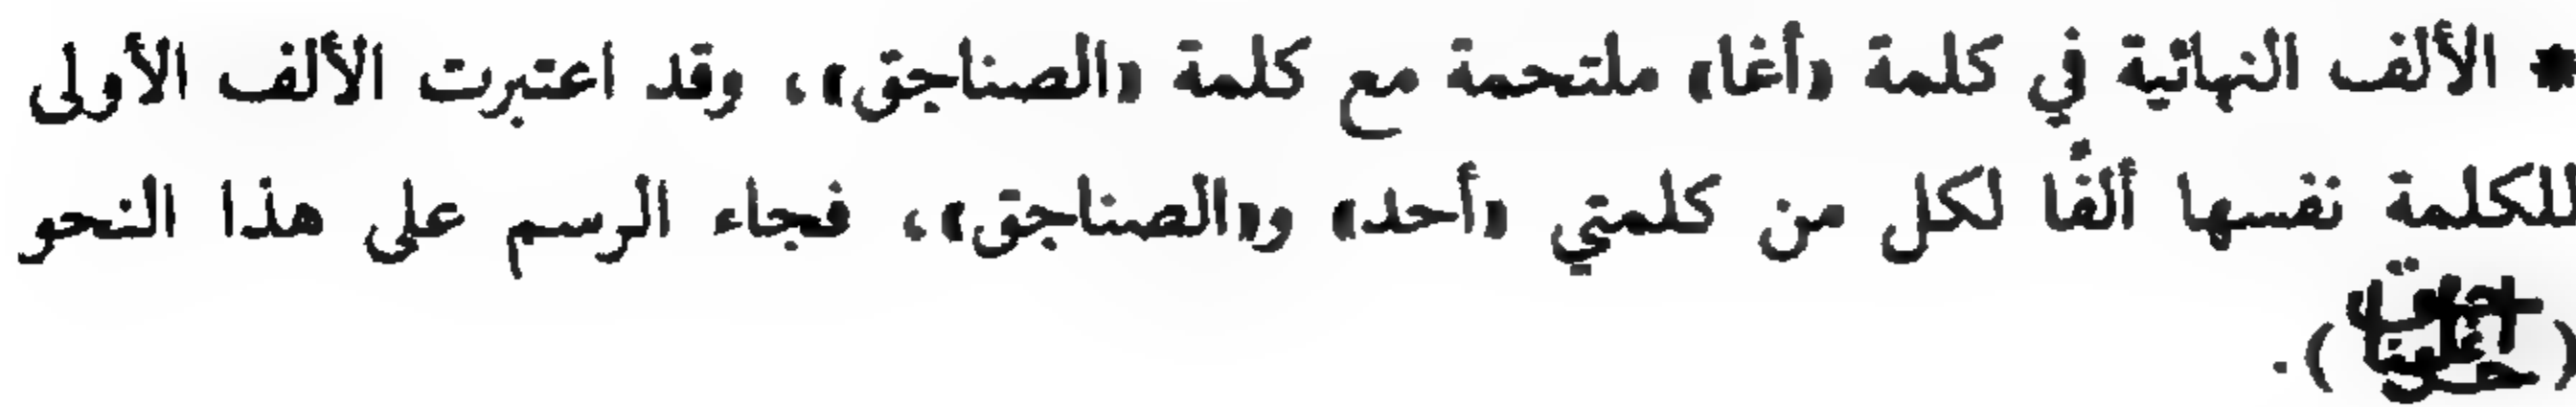 * الألف النهائية في كلمة «أغا» ملتحمة مع كلمة «الصناجق»، وقد اعتبرت الألف الأولى
للكلمة نفسها ألفًا لكل من كلمتي «أحد» و«الصناجق»، فجاء الرسم على هذا النحو
( ).